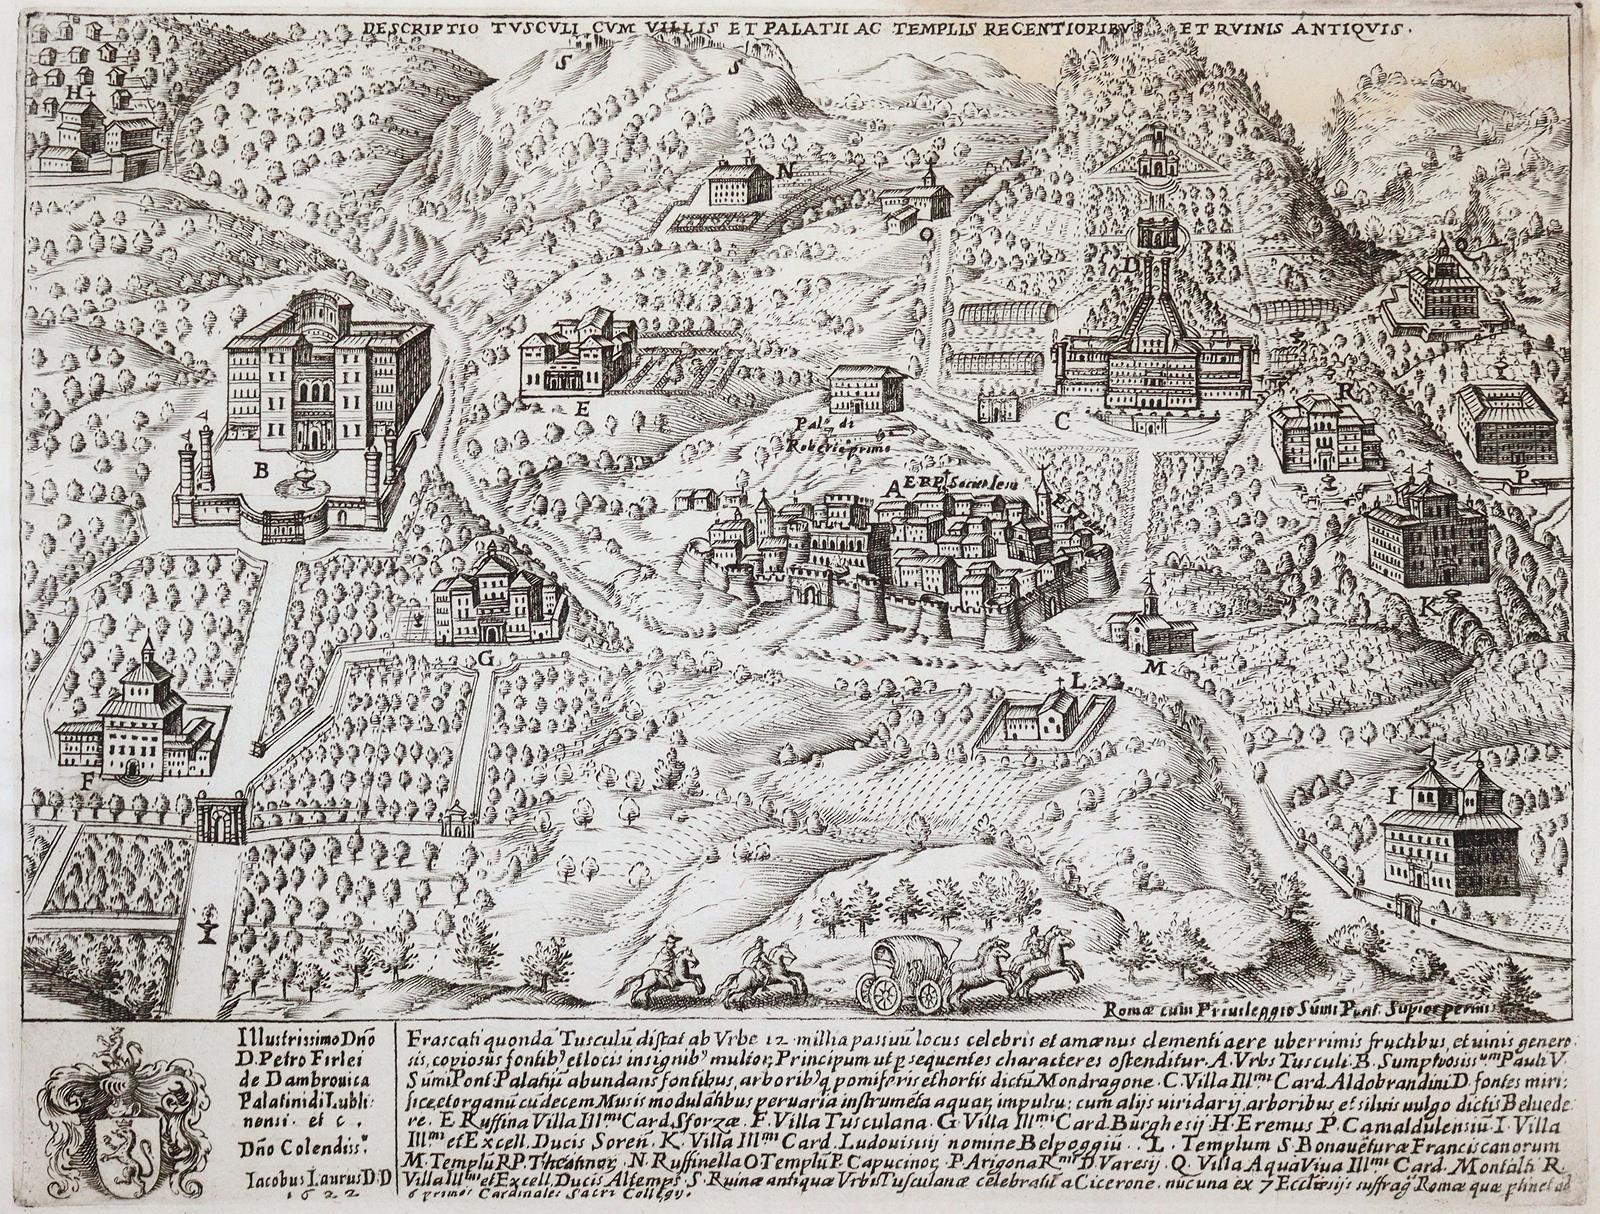 DESCRIPTIO TVSCVLI CVM VILLIS ET PALATII AC TEMPLIS RECENTIORIBVS ET RVINIS ANTIQVIS.
S
S
H
N
O
D
Q
E
Palo di
Roberto primo
C
R
P
B
A
E PP Societ Iesu
K
G
M
L
F
I
Romæ cum Priuileggio Sũmi Pont. Supior permis
Illustrissimo Dño
D. Petro Firlei
de Dambrouica
Palatini di Lubli:
nensi. et c.
Dño Colendiss.
Iacobus Laurus D.D
1622
Frascati quondã Tusculũ distat ab Vrbe 12 millia passiuũ locus celebris et amænus clementi aere uberrimis fructibus, et uinis genero:
sis, copiosus fontib9 et locis insignib9 multor, Principum ut p sequentes characteres ostenditur. A. Vrbs Tusculi. B. Sumptuosissum Pauli V.
Sũmi Pont. Palatiũ abundans fontibus, arborib9q pomiferis et hortis dictũ Mondragone. C. Villa Illmi Card. Aldobrandini D. fontes miri:
fice, et organũ cũ decem Musis modulãtibus per uaria instrumẽta aquar, impulsu; cum alijs uiridarij, arboribus, et siluis uulgo dictis Belvede:
re. E Ruffina Villa Illmi Card. Sforzæ. F. Villa Tusculana. G. Villa Illmi Card. Burghesij H. Eremus P. Camaldulensiũ. I. Villa
Illmi et Excell. Ducis Soreñ. K. Villa Illmi Card. Ludouisij nomine Belpoggiũ. L. Templum S. Bonauẽturæ Franciscanorum
M. Templũ RP. Theatinor. N. Ruffinella O Templũ P. Capucinor. P. Arigona Rmi D. Varesij. Q. Villa Aqua Viua Illmi Card. Montalti R.
Villa Illmi et Excell. Ducis Altemps. S. Ruinæ antiquæ Vrbis Tusculanæ celebratã a Cicerone. nũc una ex 7 Ecclesijs suffrag. Romæ quæ ptinet ad
6 primos Cardinales Sacri Collegij.